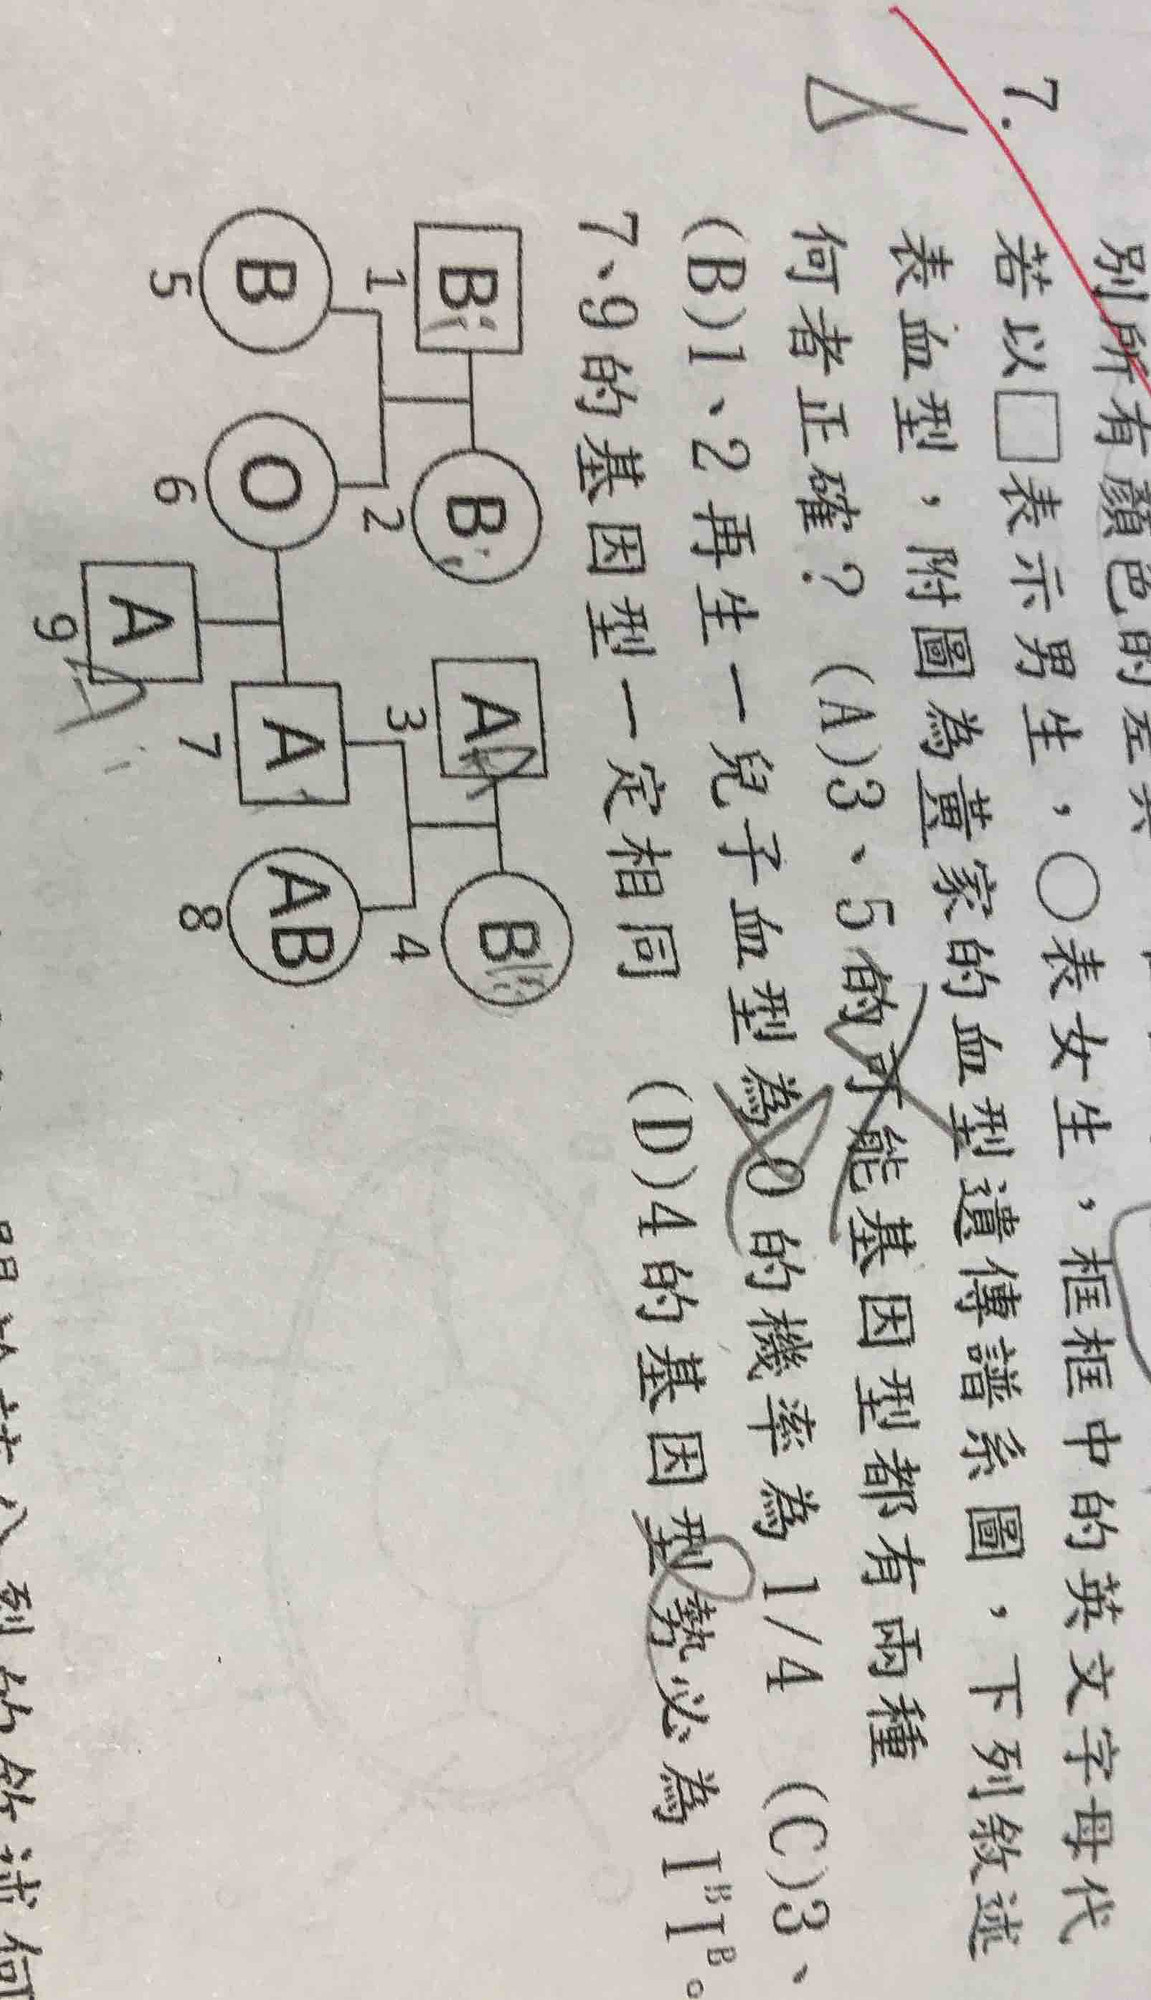 別所有顏色的差
7. 若以□表示男生,○表女生,框框中的英文字母代
表血型,附圖為黃家的血型遺傳譜系圖,下列敘述
何者正確? (A)3、5的可能基因型都有兩種
(B)1、2再生一兒子血型為O的機率為1/4 (C)3、
7、9的基因型一定相同 (D)4的基因型勢必為IᴮIᴮ。
B B A B
1 2 3 4
B O A AB
5 6 7 8
A
9